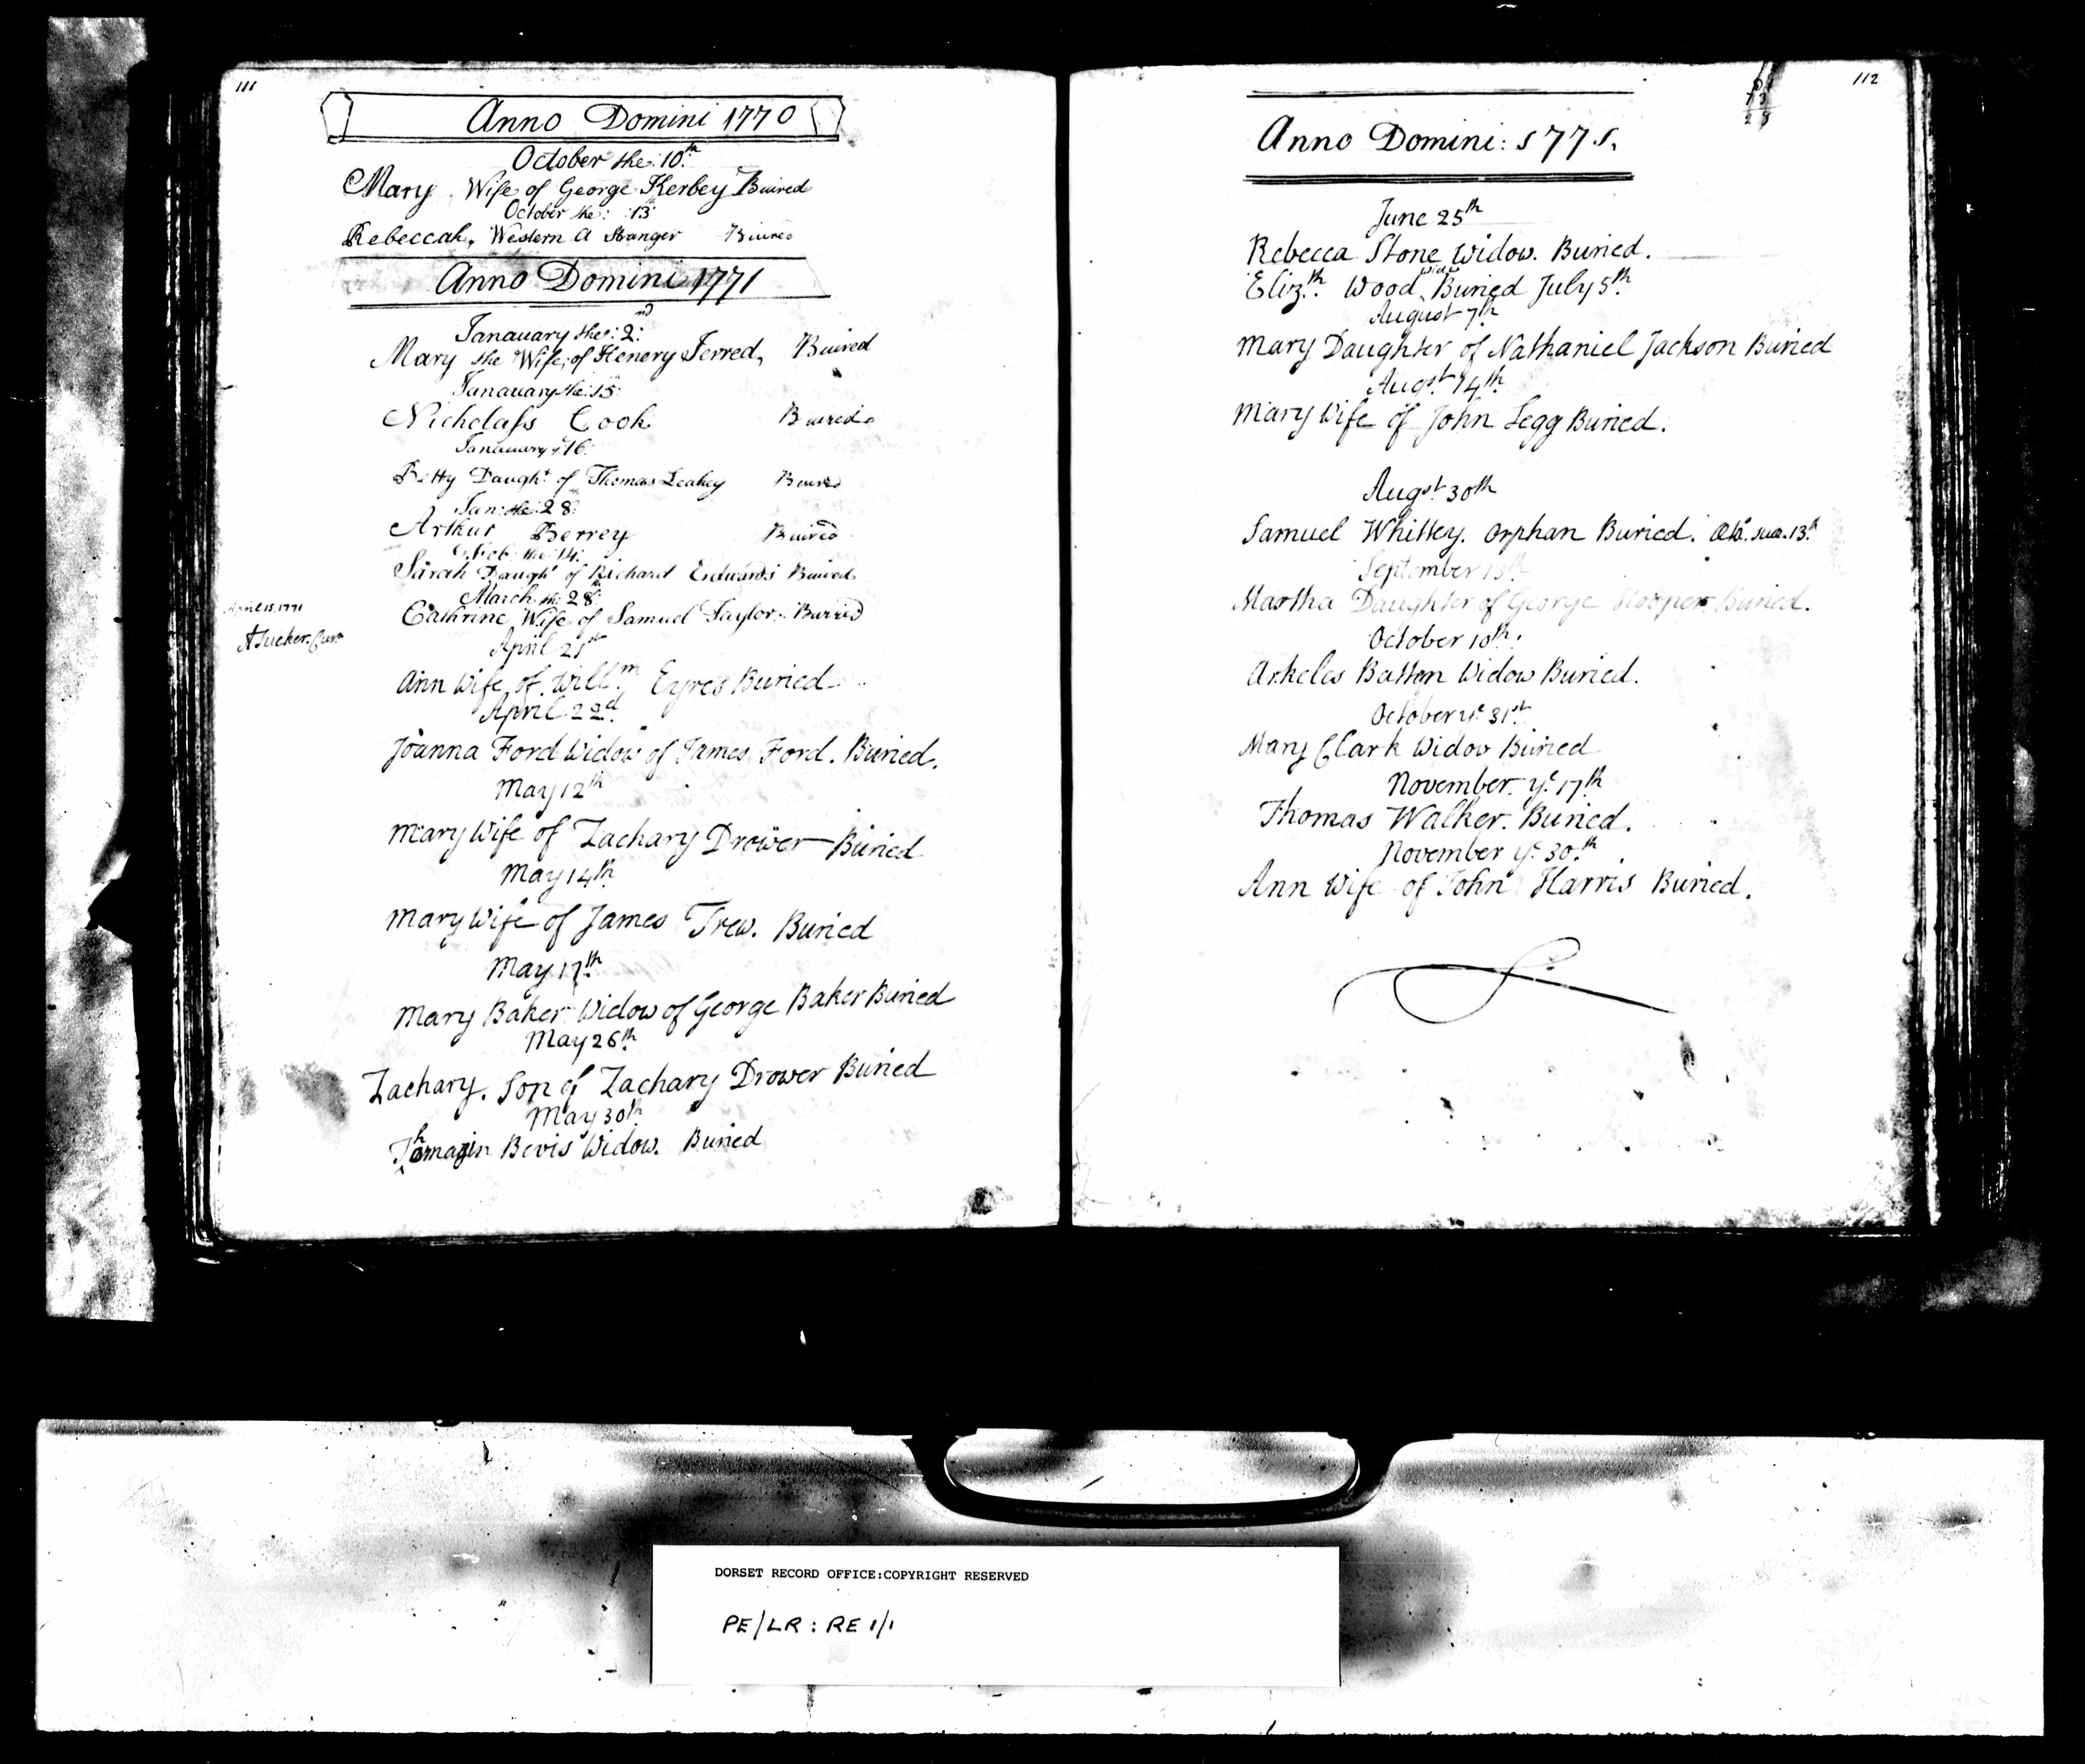 111
Anno Domini 1770
October the: 10th
Mary Wife of George Kerbey Buired
October the: 13
Rebeccah, Western A Stranger Buired
Anno Domini 1771
Janauary the: 2nd
Mary the Wife of Henery Jerred, Buired
Janauary the: 15
Nicholass Cook Buired
Janauary ye 16
Bitty Daught of Thomas Leahey Buired
Jan: the: 28
Arthur Berrey Buired
Feb: the: 14:
Sarah Daught of Richard Eidwards Buired
March the 28
Cathrine Wife of Samuel Taylor Burried
April 15, 1771
A Tucker. Curt
April 21st
Ann Wife of Willm Eyres Buried
April 22d
Joanna Ford Widow of James Ford. Buried.
May 12th
Mary Wife of Zachary Drower Buried
May 14th
Mary Wife of James Trew. Buried
May 17th
Mary Baker Widow of George Baker Buried
May 26th
Zachary. Son of Zachary Drower Buried
May 30th
Thomazin Bevis Widow. Buried
112
Anno Domini: 1771.
June 25th
Rebecca Stone Widow. Buried.
Elizth Wood Widw Buried July 5th
August 7th
Mary Daughter of Nathaniel Jackson Buried
Augst 14th
Mary Wife of John Legg Buried.
Augst 30th
Samuel Whittey. Orphan Buried. 13th
September 13th
Martha Daughter of George Hooper Buried.
October 10th:
Arkeles Batten Widow Buried.
October ye 31st
Mary Clark Widow Buried
November ye 17th
Thomas Walker. Buried.
November ye 30th
Ann Wife of John Harris Buried.
DORSET RECORD OFFICE:COPYRIGHT RESERVED
PE/LR : RE 1/1